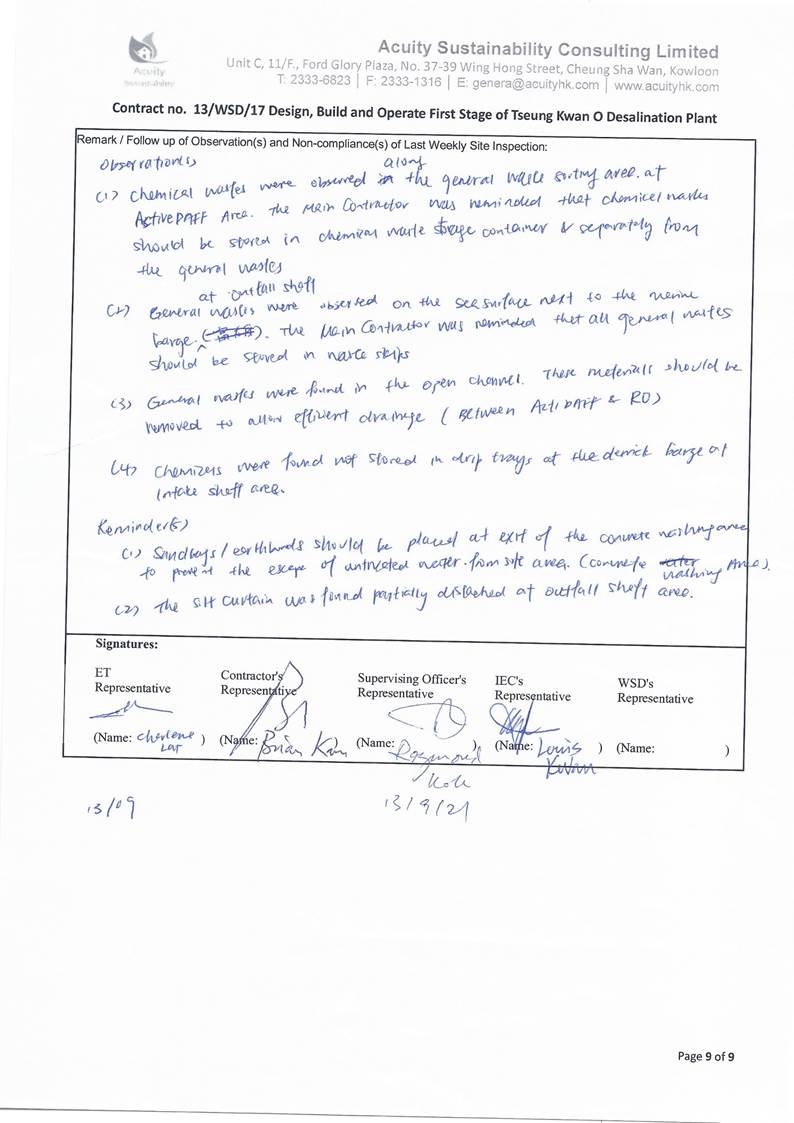 Acuity Sustainability Consulting Limited
Acuity
Sustainability
Unit C, 11/F., Ford Glory Plaza, No. 37-39 Wing Hong Street, Cheung Sha Wan, Kowloon
T: 2333-6823 | F: 2333-1316 | E: genera@acuityhk.com | www.acuityhk.com
Contract no. 13/WSD/17 Design, Build and Operate First Stage of Tseung Kwan O Desalination Plant
Remark / Follow up of Observation(s) and Non-compliance(s) of Last Weekly Site Inspection:
Observation(s)
(1) Chemical wastes were observed along the general waste sorting area at
ActiveDAFF Area. The Main Contractor was reminded that chemical wastes
should be stored in chemical waste storage container & separately from
the general wastes
at outfall shaft
(2) General wastes were observed on the sea surface next to the marine
barge. The Main Contractor was reminded that all general wastes
should be stored in waste skips
(3) General wastes were found in the open channel. These materials should be
removed to allow efficient drainage (Between ActiDAFF & RO)
(4) Chemicals were found not stored in drip trays at the derrick barge at
Intake shaft area.
Reminder(s)
(1) Sandbags / earthbunds should be placed at exit of the concrete washing area
to prevent the escape of untreated water from site area. (concrete washing Area).
(2) The silt curtain was found partially detached at outfall shaft area.
Signatures:
ET Representative
Contractor's Representative
Supervising Officer's Representative
IEC's Representative
WSD's Representative
(Name: Cherlene Lar )
(Name: Brian Kan
(Name: Raymond Koh )
(Name: Louis Kwan )
(Name: )
13/09
13/9/21
Page 9 of 9